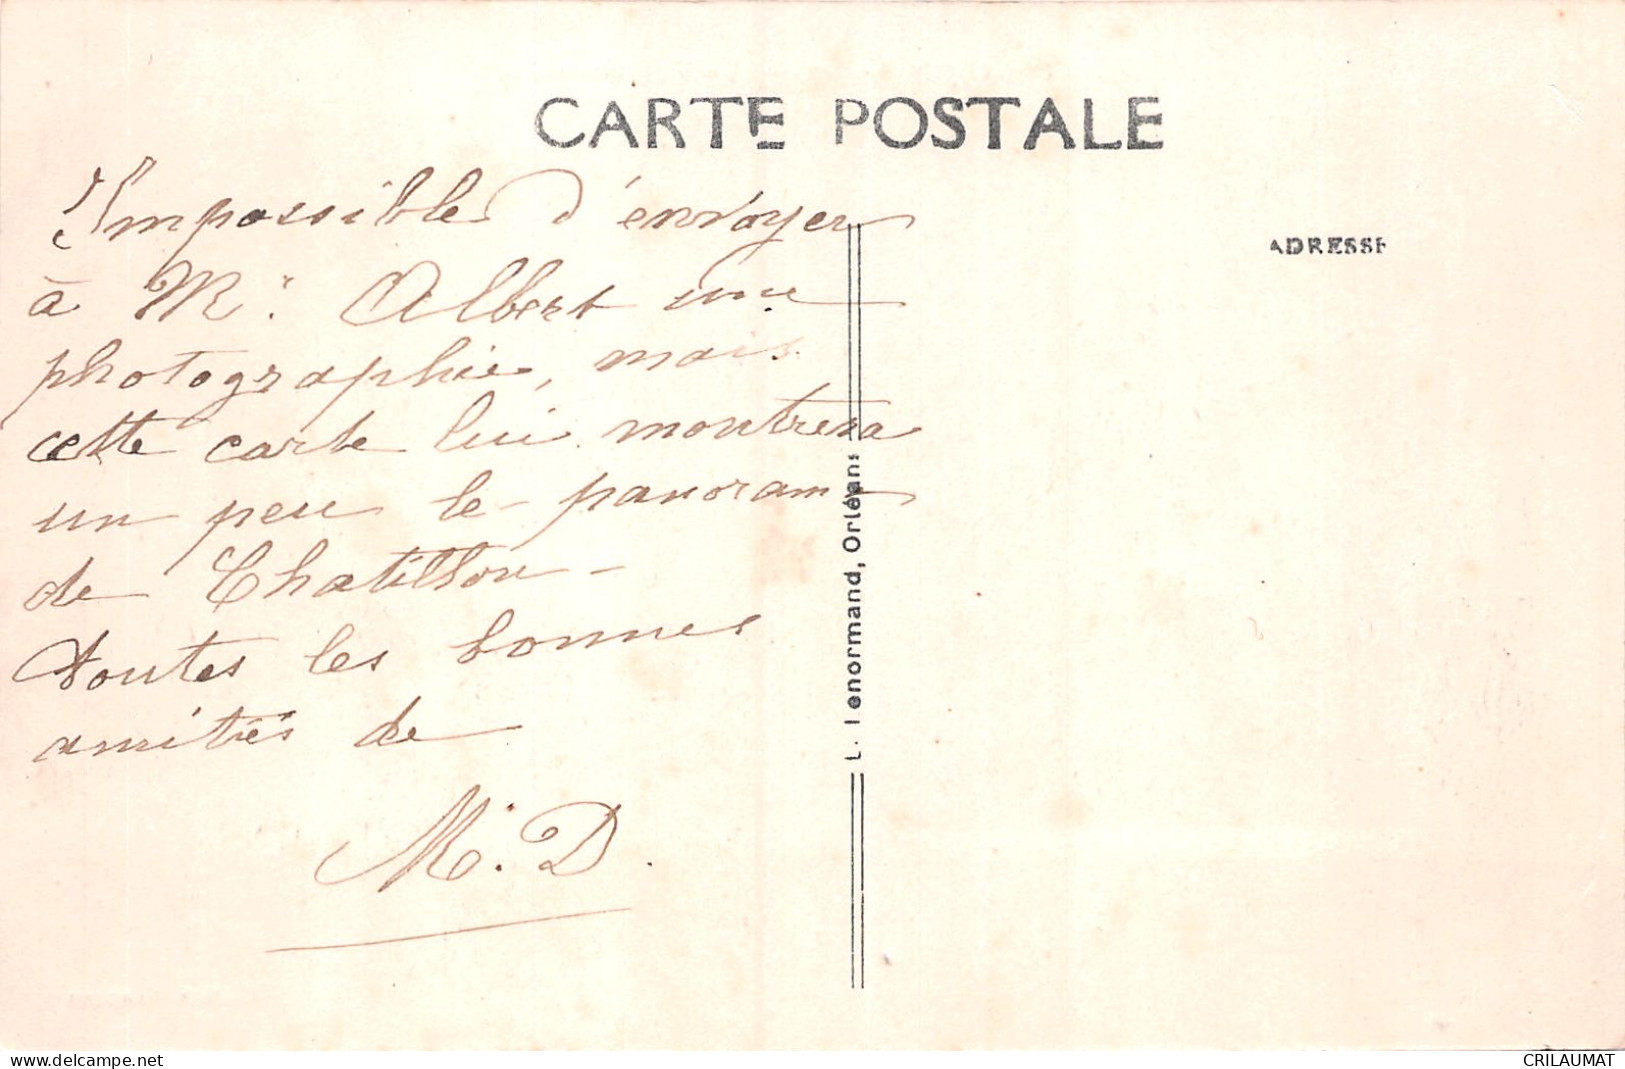 CARTE POSTALE
ADRESSE
Impossible d'envoyer
à Mr. Albert une
photographie, mais
cette carte lui montrera
un peu le panorama
de Chatillon -
toutes les bonnes
amitiés de
M. D.
L. Lenormand, Orléans
www.delcampe.net
CRILAUMAT